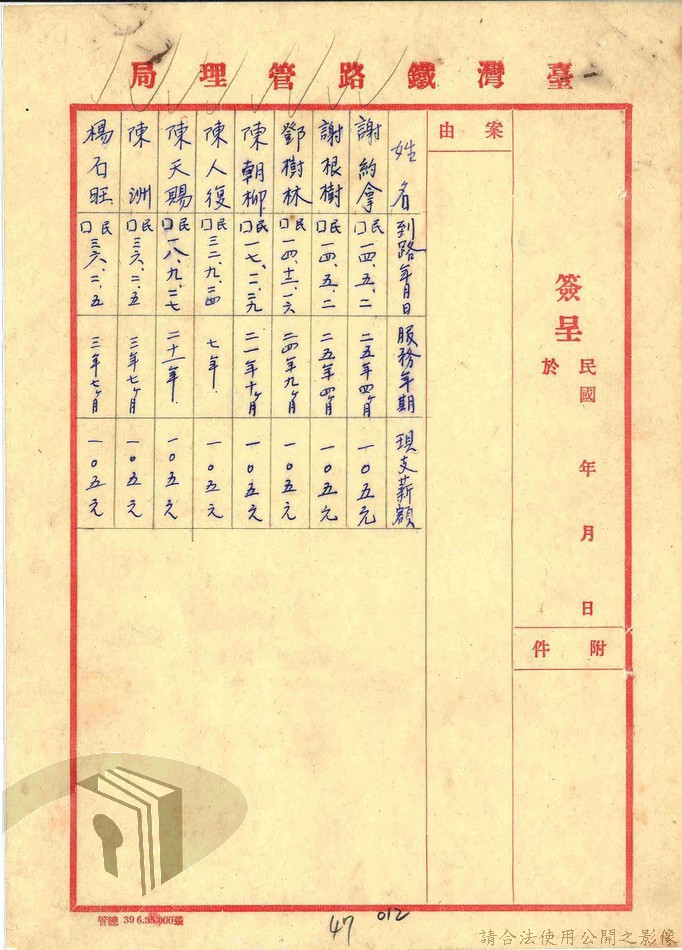 臺灣鐵路管理局
簽呈
於
民國 年 月 日
附件
案由
姓名 到路年月日 服務年期 現支薪額
謝約拿 民口一四、五、二 二五年四ヶ月 一〇五元
謝根樹 民口一四、五、二 二五年四ヶ月 一〇五元
鄧樹林 民口一四、十二、一六 二四年九ヶ月 一〇五元
陳朝柳 民口一七、二、二九 二一年十ヶ月 一〇五元
陳人復 民口三二、九、三四 七年 一〇五元
陳天賜 民口一八、九、二七 二十一年 一〇五元
陳洲 民口三六、二、五 三年七ヶ月 一〇五元
楊石旺 民口三六、二、五 三年七ヶ月 一〇五元
管總 39 6.35,000張
47
012
請合法使用公開之影像